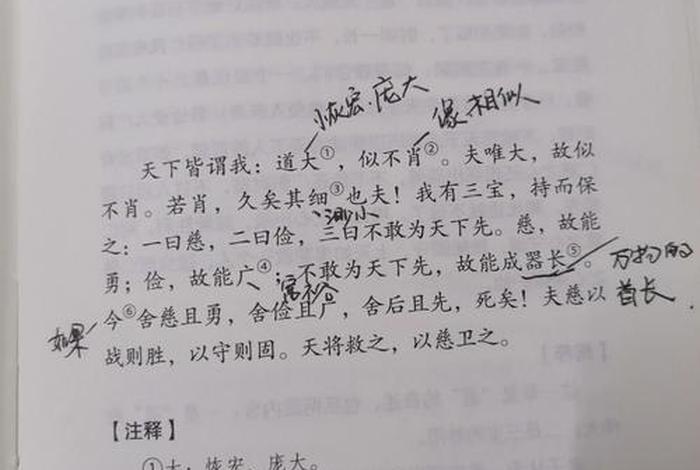 恢宏.庞大
像、相似
天下皆谓我：道大①，似不肖②。夫唯大，故似
不肖。若肖，久矣其细③也夫！我有三宝，持而保
渺小
之：一曰慈，二曰俭，三曰不敢为天下先。慈，故能
勇；俭，故能广④；不敢为天下先，故能成器长⑤。
万物的
富裕
今⑥舍慈且勇，舍俭且广，舍后且先，死矣！夫慈以
首长
如果
战则胜，以守则固。天将救之，以慈卫之。
【注释】
①大：恢宏、庞大。